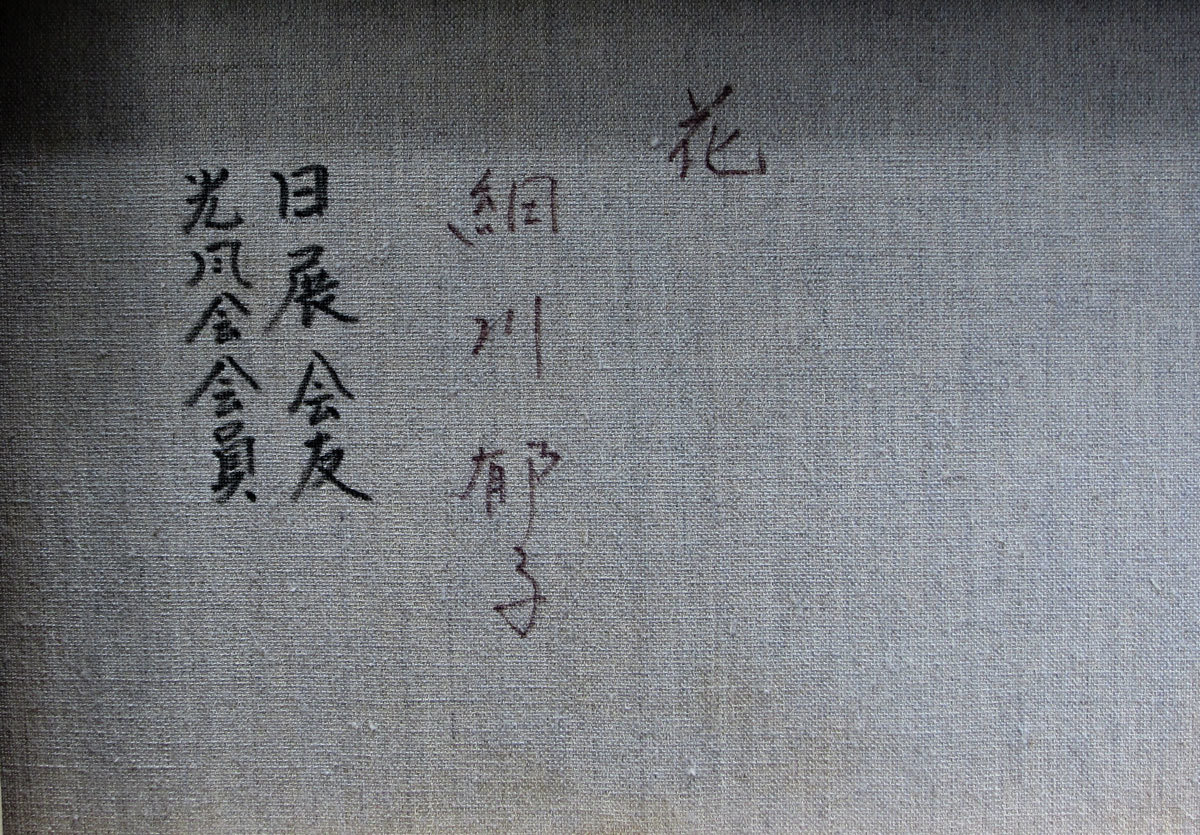 花
細川郁子
日展会友
光風会会員